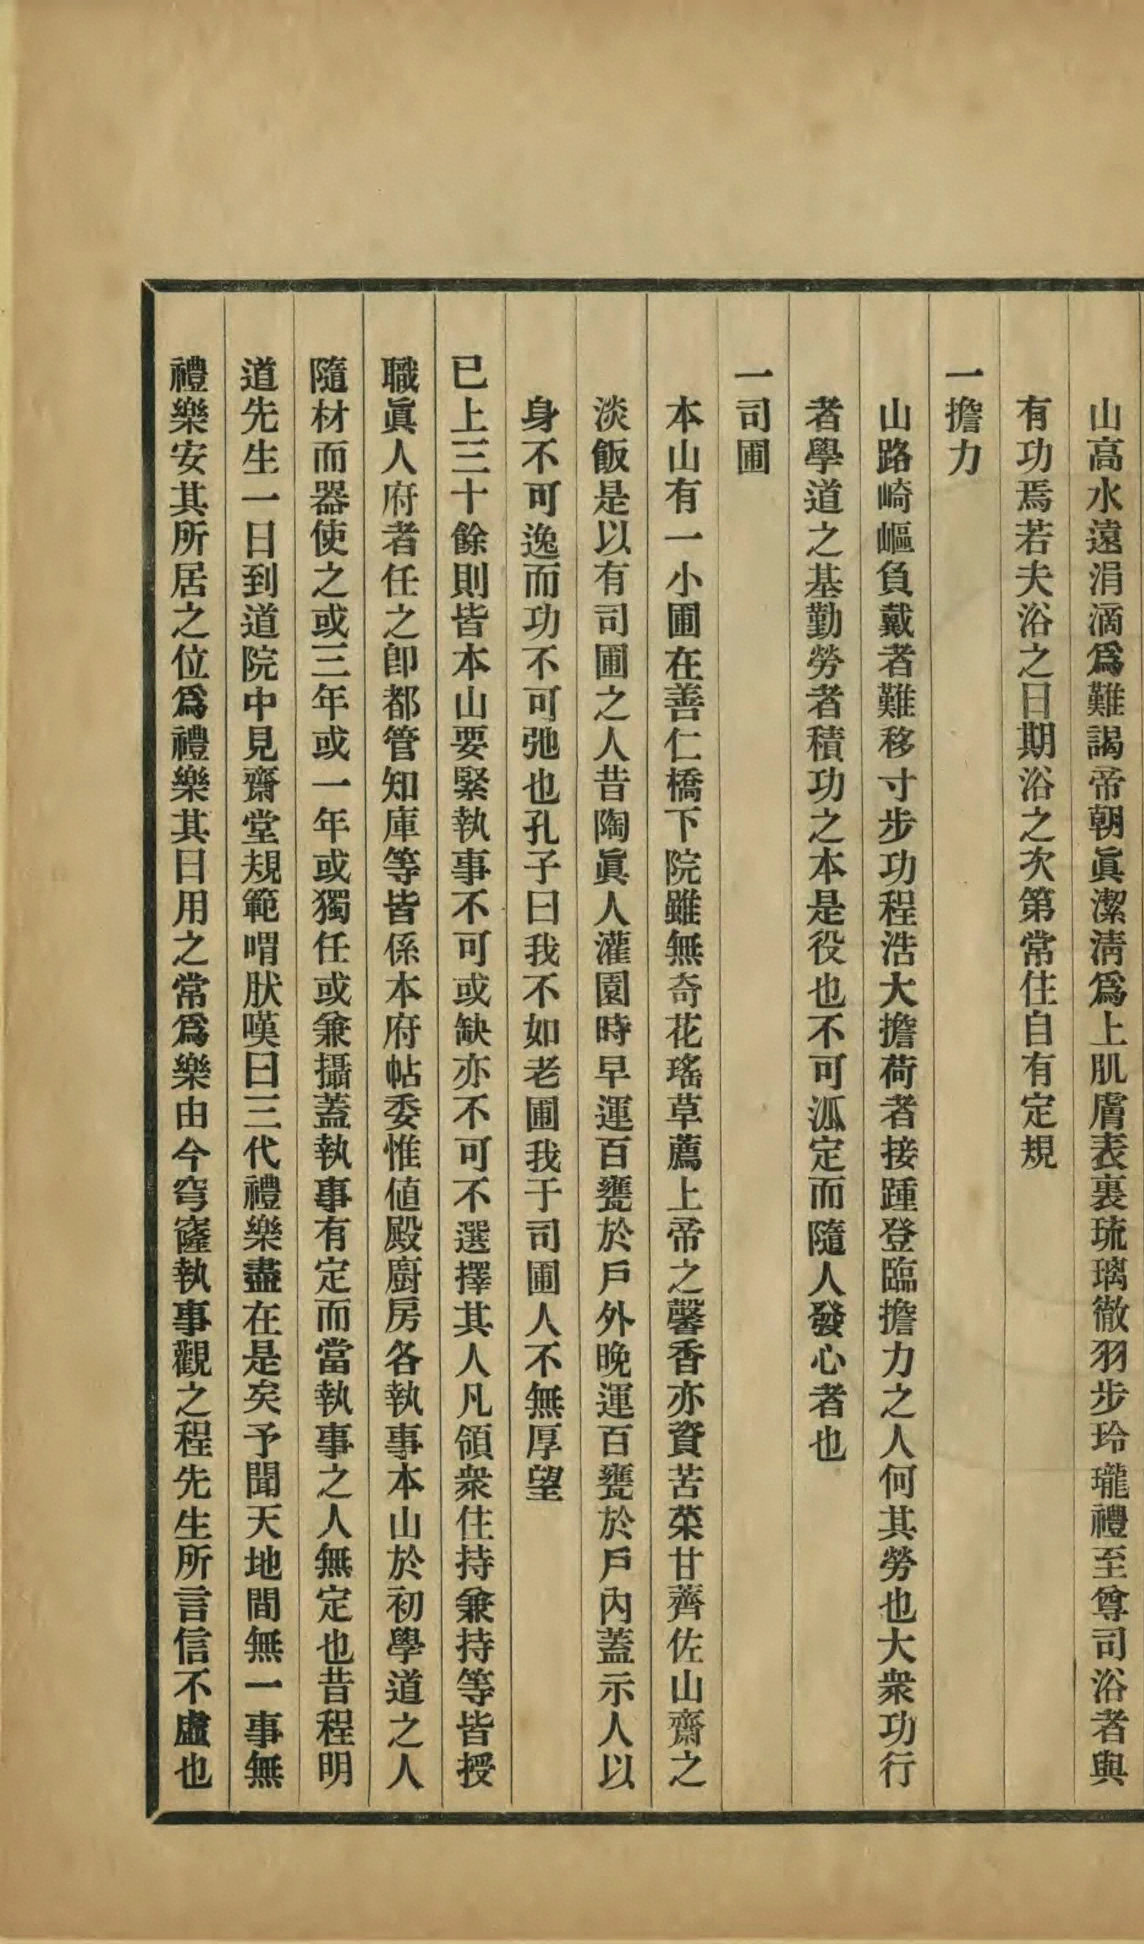 山高水遠涓滴爲難謁帝朝眞潔淸爲上肌膚表裏琉璃徹羽步玲瓏禮至尊司浴者與
有功焉若夫浴之日期浴之次第常住自有定規
一擔力
山路崎嶇負戴者難移寸步功程浩大擔荷者接踵登臨擔力之人何其勞也大衆功行
者學道之基勤勞者積功之本是役也不可泒定而隨人發心者也
一司圃
本山有一小圃在善仁橋下院雖無奇花瑤草薦上帝之馨香亦資苦菜甘薺佐山齋之
淡飯是以有司圃之人昔陶眞人灌園時早運百甕於戶外晚運百甕於戶內蓋示人以
身不可逸而功不可弛也孔子曰我不如老圃我于司圃人不無厚望
已上三十餘則皆本山要緊執事不可或缺亦不可不選擇其人凡領衆住持兼持等皆授
職眞人府者任之卽都管知庫等皆係本府帖委惟値殿廚房各執事本山於初學道之人
隨材而器使之或三年或一年或獨任或兼攝蓋執事有定而當執事之人無定也昔程明
道先生一日到道院中見齋堂規範喟肰嘆曰三代禮樂盡在是矣予聞天地間無一事無
禮樂安其所居之位爲禮樂其日用之常爲樂由今穹窿執事觀之程先生所言信不虛也